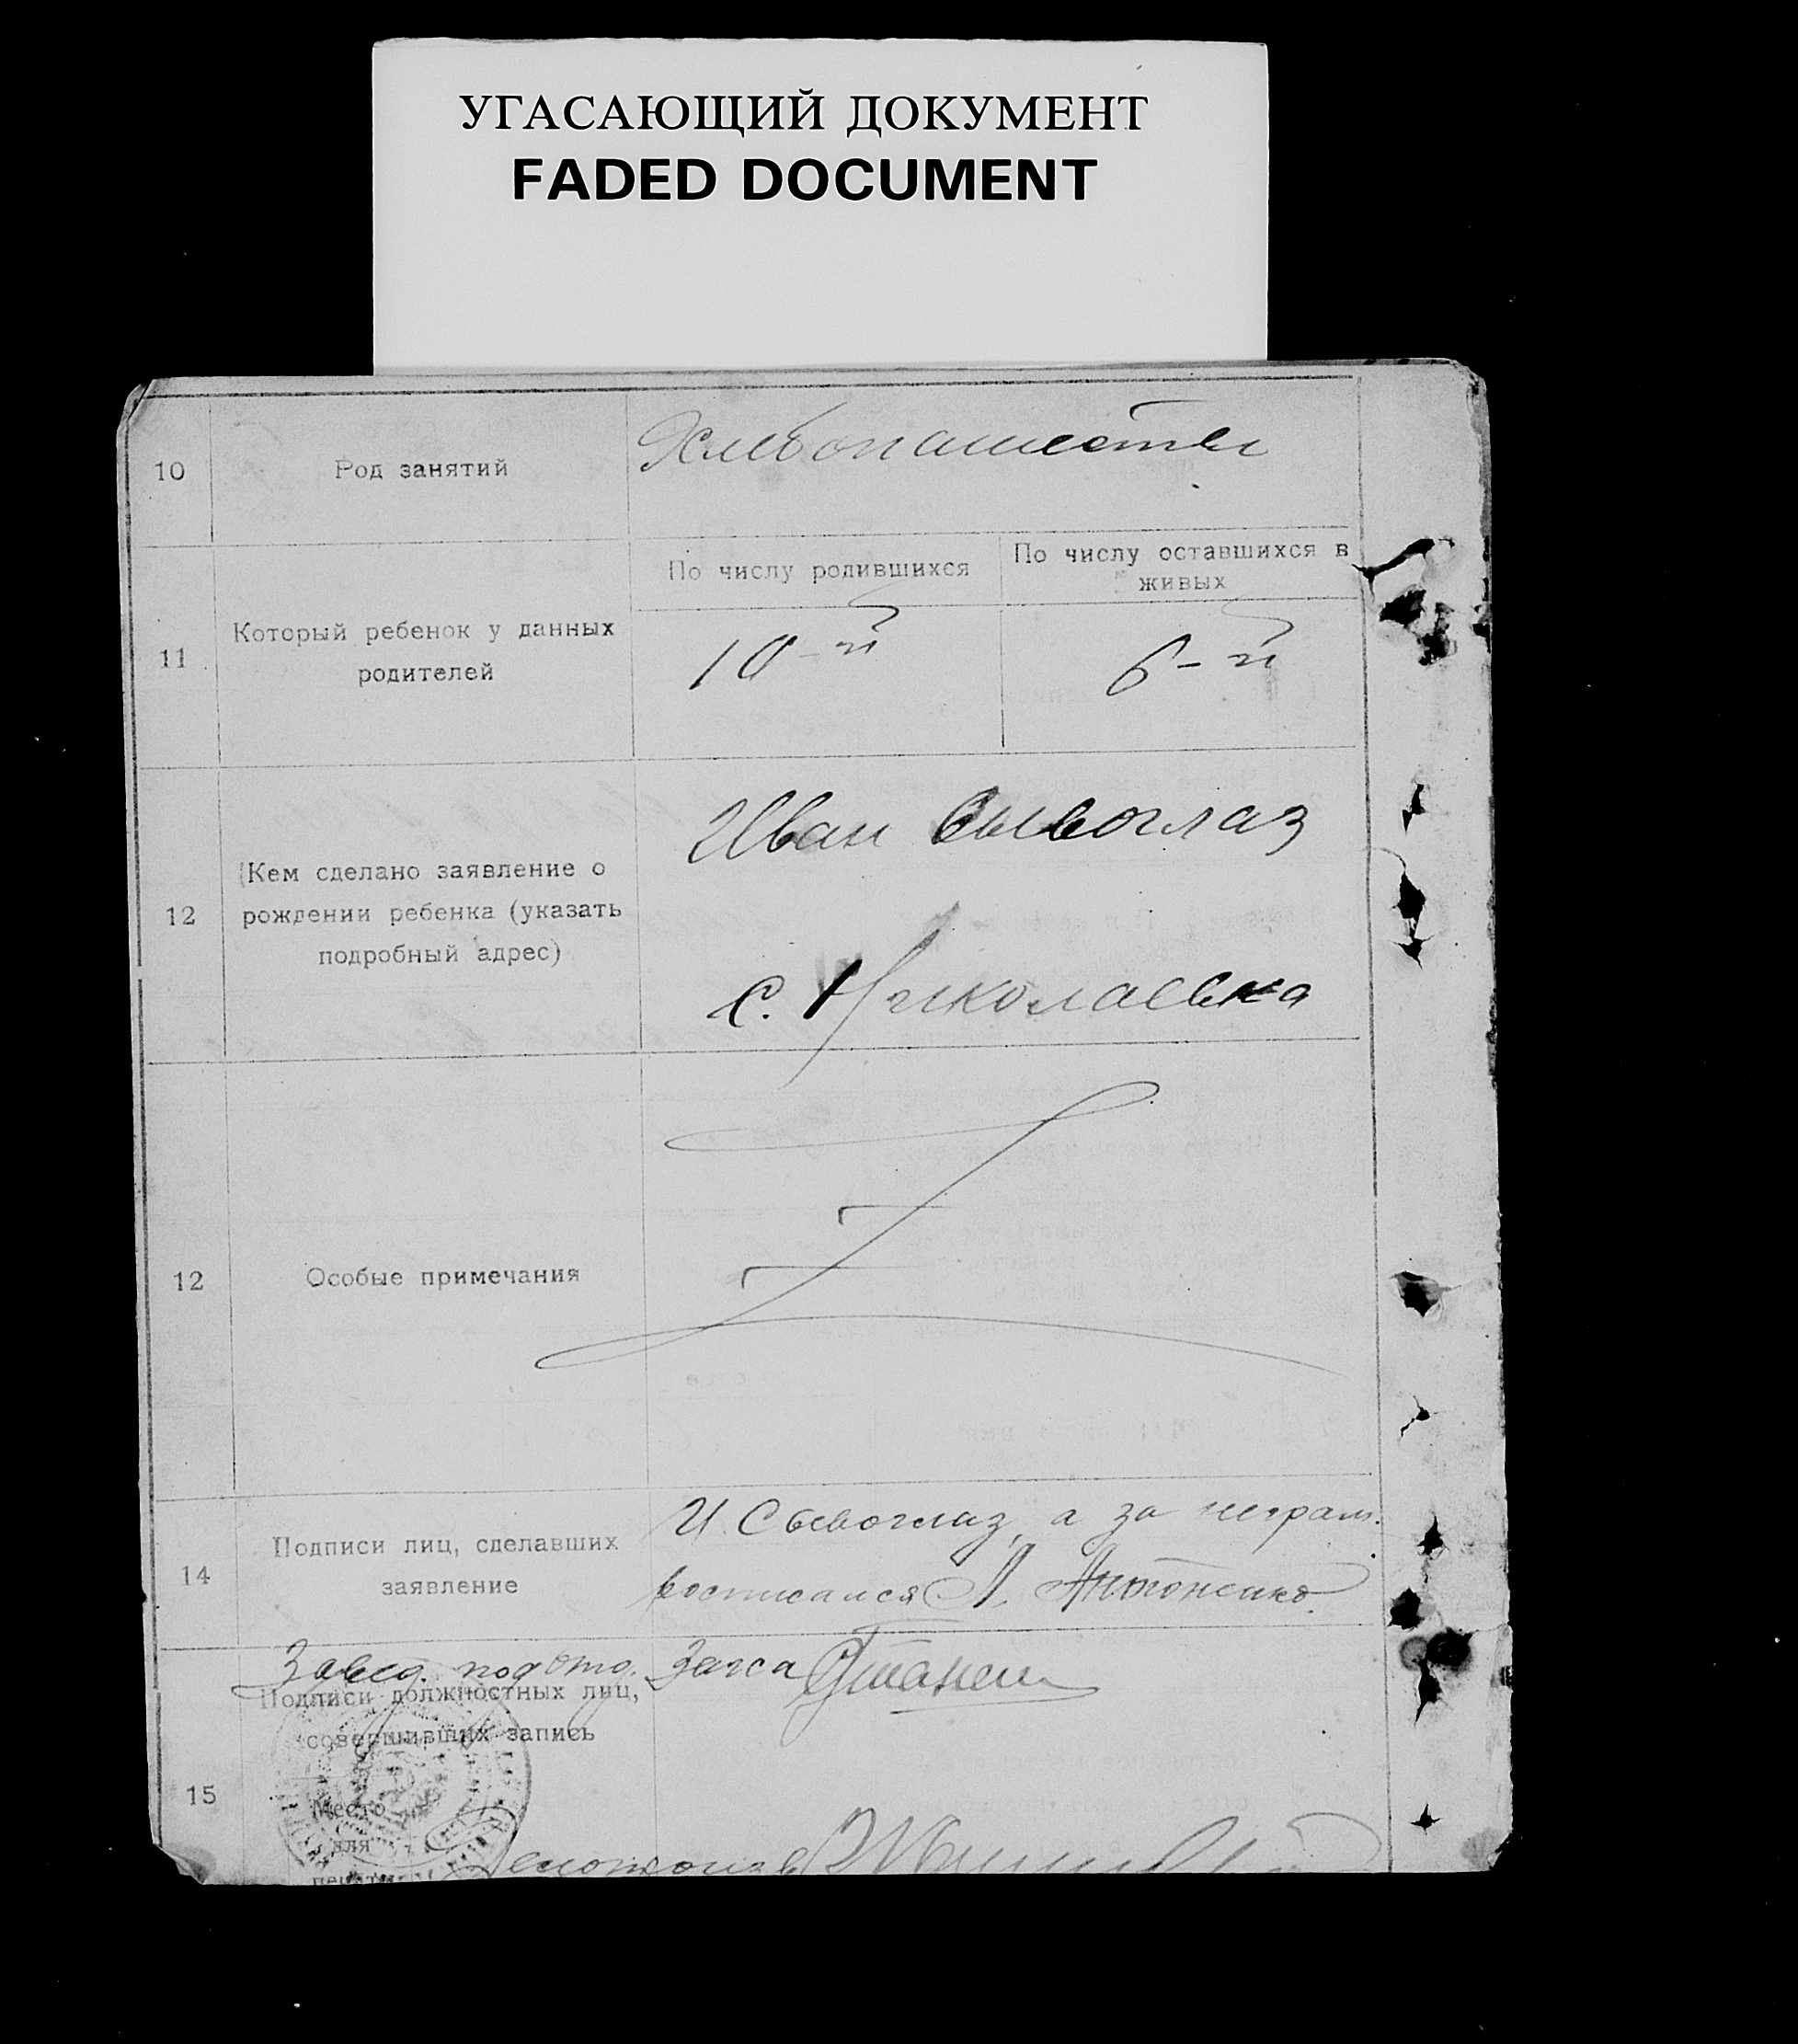 УГАСАЮЩИЙ ДОКУМЕНТ
FADED DOCUMENT
10
Род занятий
11
Который ребенок у данных
родителей
По числу родившихся
По числу оставшихся в
живых
10-й
6-й
12
Кем сделано заявление о
рождении ребенка (указать
подробный адрес)
Иван Сывоглаз
с. Николаевка
12
Особые примечания
14
Подписи лиц, сделавших
заявление
И. Сывоглаз, а за неграм.
росписался Л. Антоненко.
Завед. подотд. Загса
15
Подписи должностных лиц,
совершивших запись
Место
для
печати